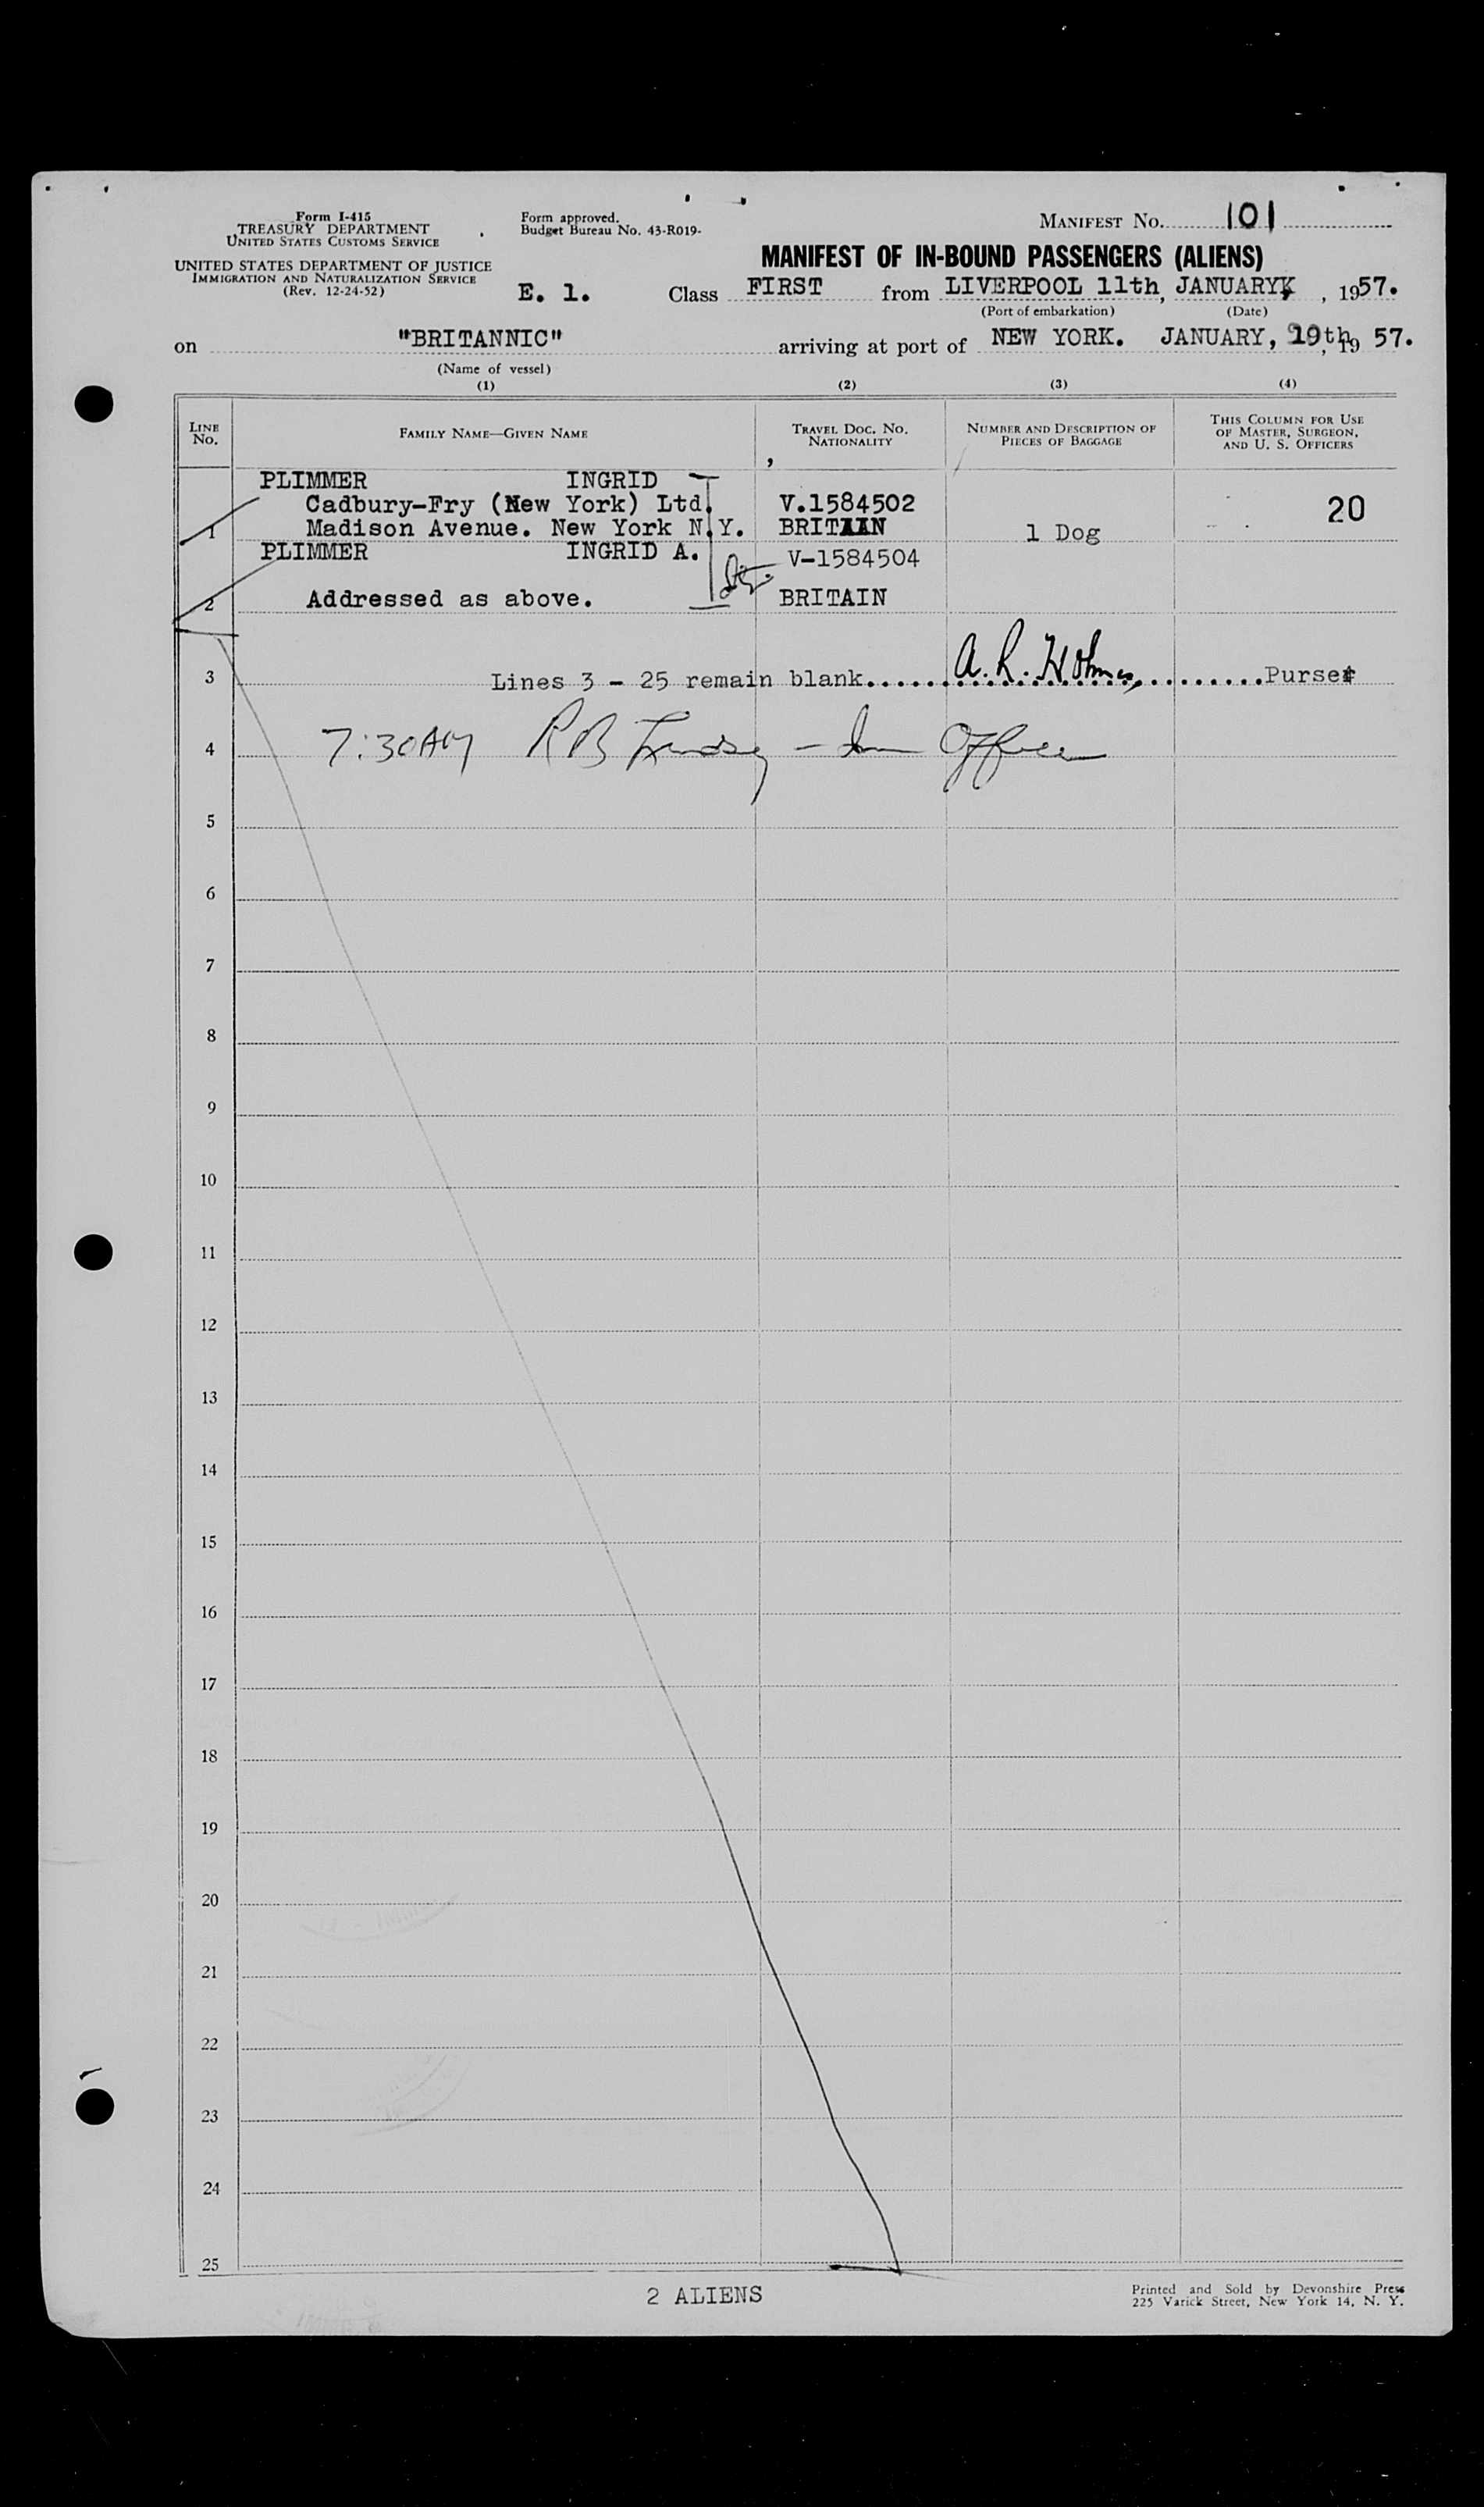 Form I-415
TREASURY DEPARTMENT
UNITED STATES CUSTOMS SERVICE
UNITED STATES DEPARTMENT OF JUSTICE
IMMIGRATION AND NATURALIZATION SERVICE
(Rev. 12-24-52)
Form approved.
Budget Bureau No. 43-R019-
MANIFEST No. 101
MANIFEST OF IN-BOUND PASSENGERS (ALIENS)
E. 1. Class FIRST from LIVERPOOL 11th, JANUARY, 1957.
(Port of embarkation) (Date)
on "BRITANNIC" arriving at port of NEW YORK. JANUARY, 19th, 19 57.
(Name of vessel)
(1) (2) (3) (4)
LINE No. FAMILY NAME—GIVEN NAME TRAVEL DOC. No. NATIONALITY NUMBER AND DESCRIPTION OF PIECES OF BAGGAGE THIS COLUMN FOR USE OF MASTER, SURGEON, AND U. S. OFFICERS
PLIMMER INGRID
Cadbury-Fry (New York) Ltd. V.1584502 20
1 Madison Avenue. New York N.Y. BRITAIN 1 Dog
PLIMMER INGRID A. V-1584504
2 Addressed as above. BRITAIN
3 Lines 3 - 25 remain blank. A. R. Holmes Purser
4 7:30AM R B Lindsey - Imm Officer
5
6
7
8
9
10
11
12
13
14
15
16
17
18
19
20
21
22
23
24
25
2 ALIENS
Printed and Sold by Devonshire Press
225 Varick Street, New York 14, N. Y.